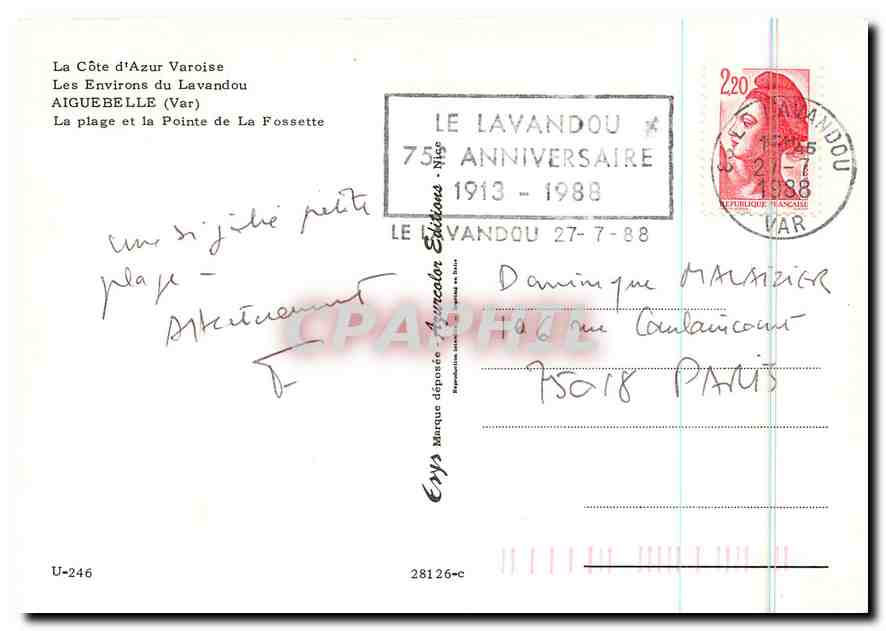 La Côte d'Azur Varoise
Les Environs du Lavandou
AIGUEBELLE (Var)
La plage et la Pointe de La Fossette
LE LAVANDOU
75e ANNIVERSAIRE
1913 - 1988
LE LAVANDOU 27-7-88
2,20
REPUBLIQUE FRANÇAISE
83 LE LAVANDOU
27-7
1988
VAR
une si jolie petite
plage -
Affectueusement
Dominique MALAIZIER
rue Caulaincourt
75018 PARIS
CPAPHIL
Esys Marque déposée - Azurcolor Editions - Nice
U-246
28126-c